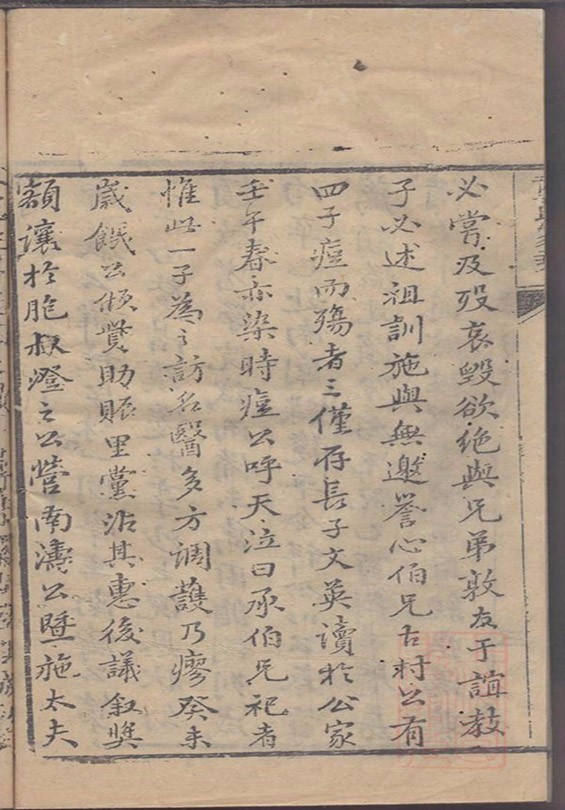 必嘗及歿哀毀欲絕與兄弟敦友于誼教
子必述祖訓施與無邀譽心伯兄古村公有
四子痘而殤者三僅存長子文英讀於公家
壬午春亦染時痘公呼天泣曰承伯兄祀者
惟此一子為之訪名醫多方調護乃瘳癸未
歲饑公傾貲助賑里黨沾其惠後議敘獎
額讓於胞叔澄之公營南濤公暨施太夫